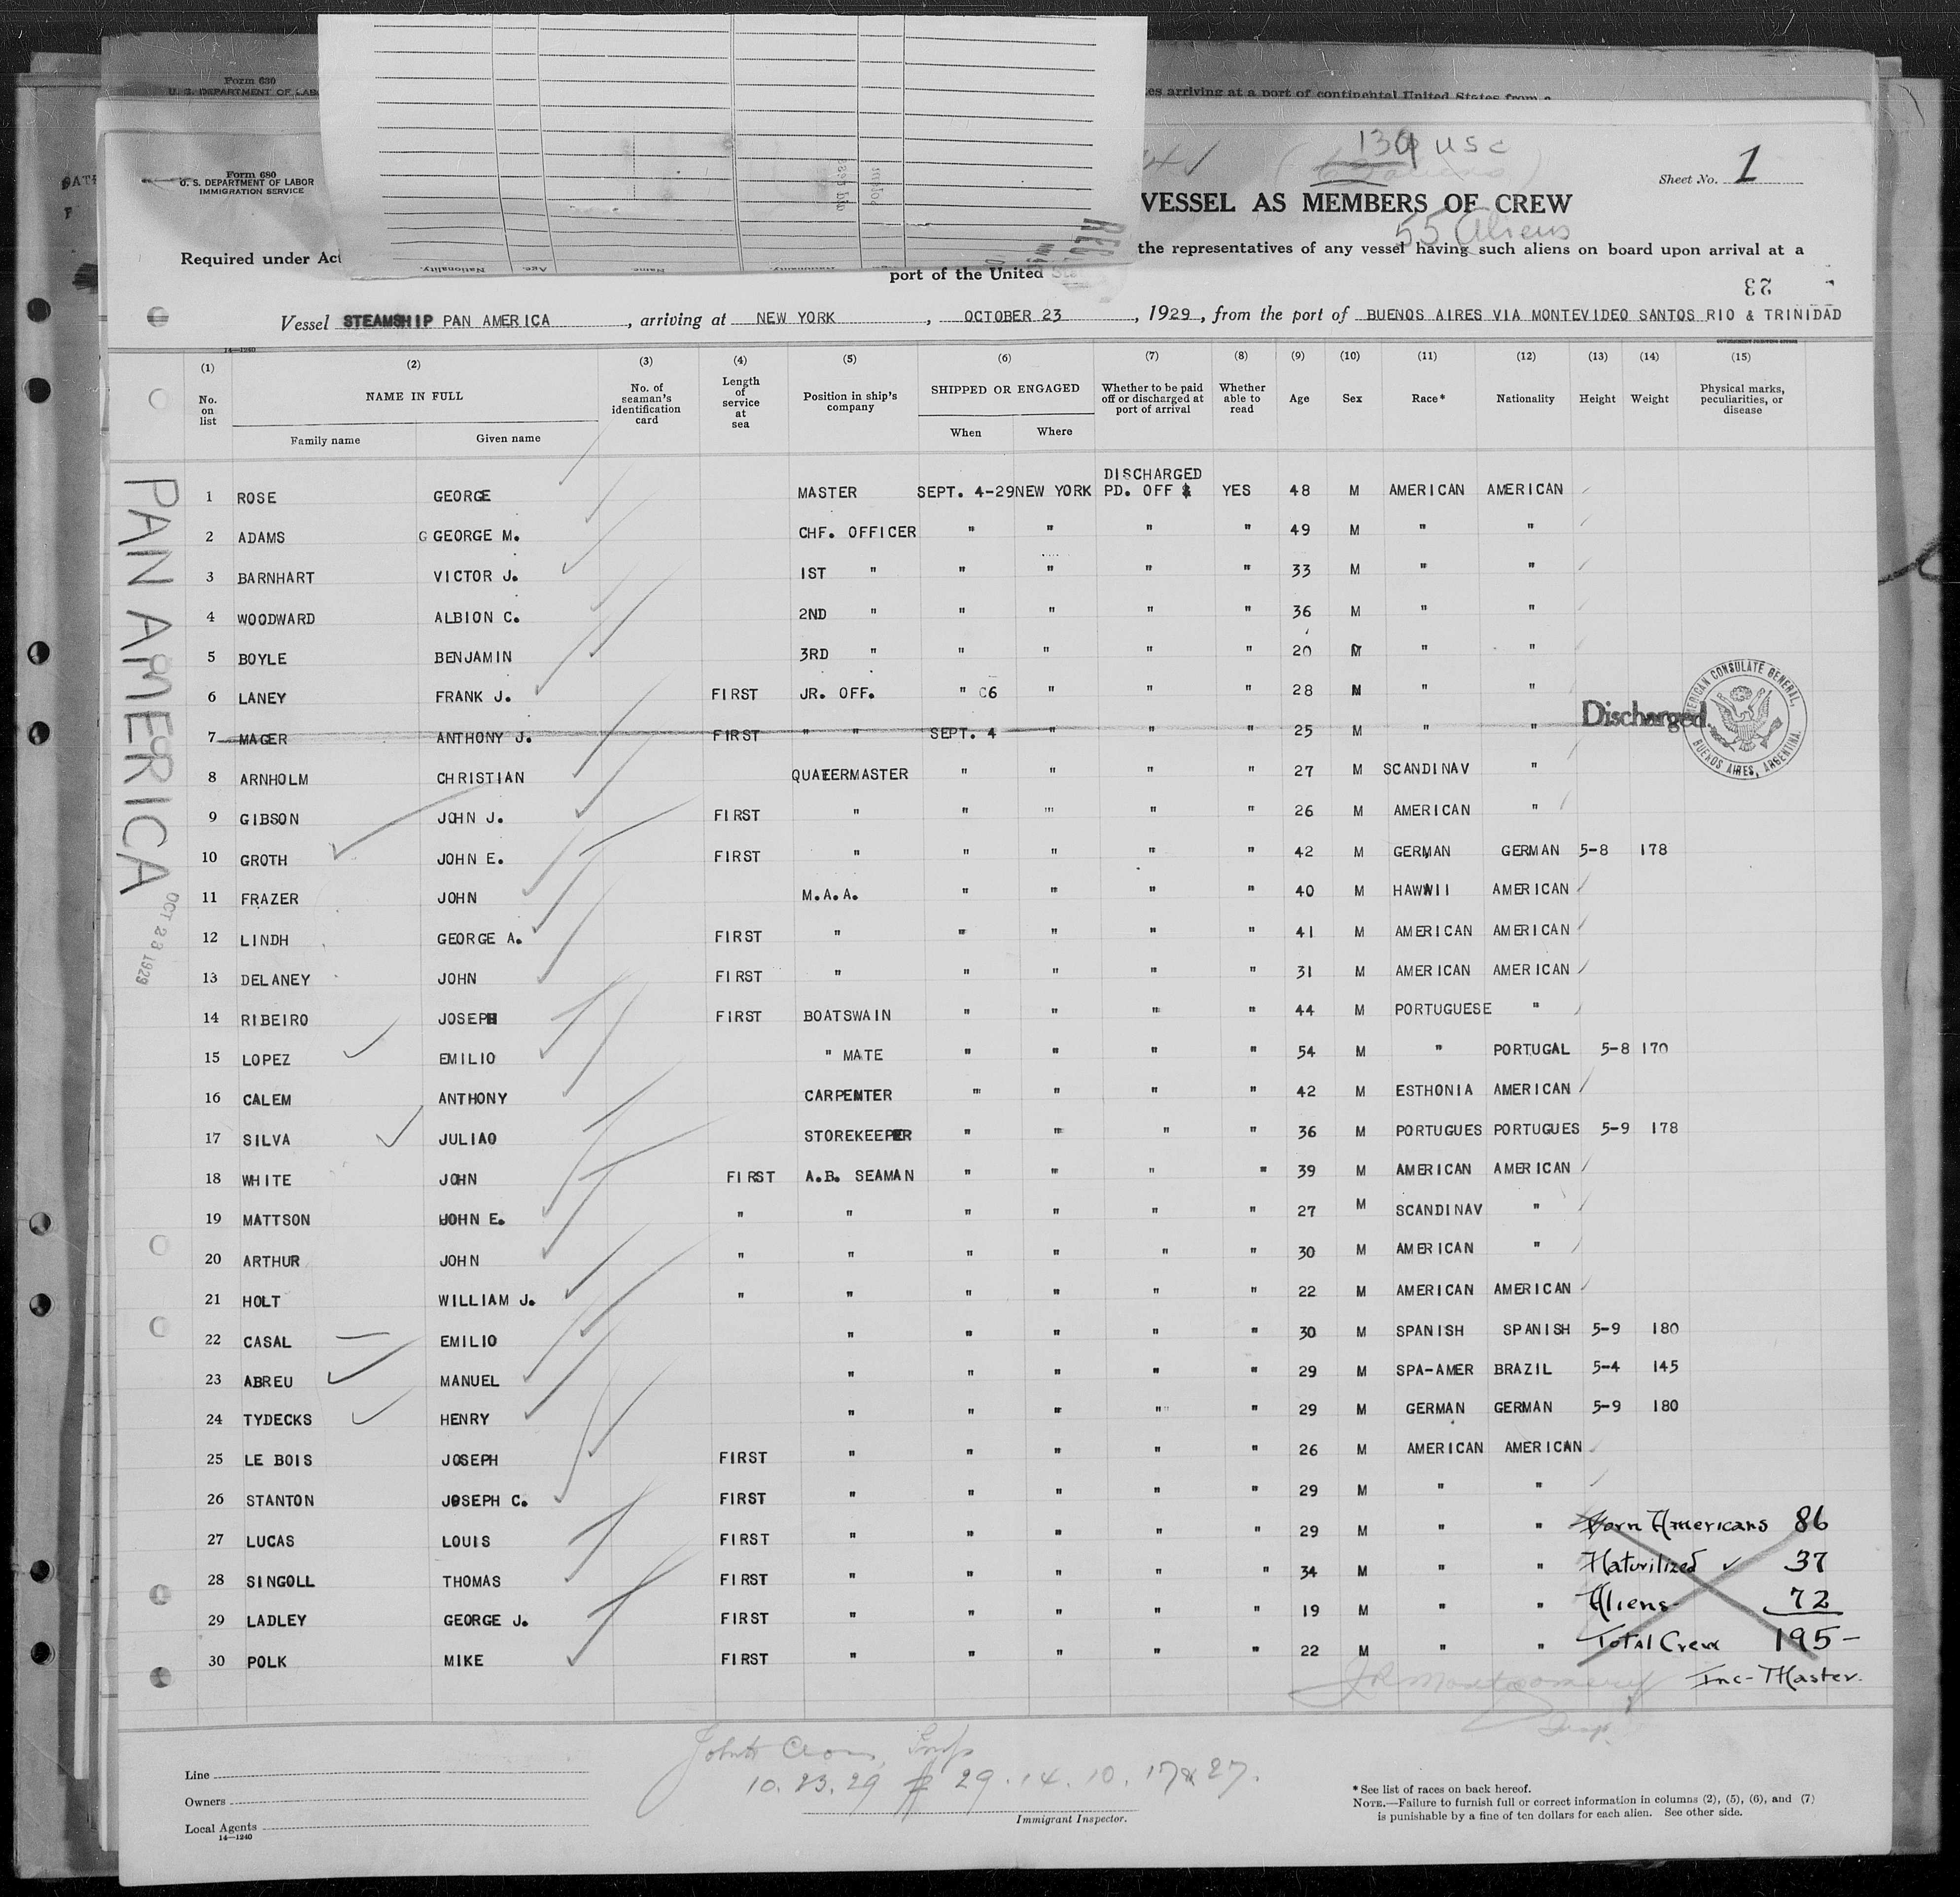 Form 630
U. S. DEPARTMENT OF LAB
es arriving at a port of continental United States from a
Form 680
U. S. DEPARTMENT OF LABOR
IMMIGRATION SERVICE
139 USC
Sheet No. 1
VESSEL AS MEMBERS OF CREW
55 Aliens
Required under Act
the representatives of any vessel having such aliens on board upon arrival at a
port of the United
23
Vessel STEAMSHIP PAN AMERICA, arriving at NEW YORK, OCTOBER 23, 1929, from the port of BUENOS AIRES VIA MONTEVIDEO SANTOS RIO & TRINIDAD
14—1240
(1) (2) (3) (4) (5) (6) (7) (8) (9) (10) (11) (12) (13) (14) (15)
No. on list NAME IN FULL Family name Given name No. of seaman's identification card Length of service at sea Position in ship's company SHIPPED OR ENGAGED When Where Whether to be paid off or discharged at port of arrival Whether able to read Age Sex Race* Nationality Height Weight Physical marks, peculiarities, or disease
PAN AMERICA
OCT 23 1929
DISCHARGED
1 ROSE GEORGE MASTER SEPT. 4-29 NEW YORK PD. OFF & YES 48 M AMERICAN AMERICAN
2 ADAMS G GEORGE M. CHF. OFFICER " " " " 49 M " "
3 BARNHART VICTOR J. 1ST " " " " " 33 M " "
4 WOODWARD ALBION C. 2ND " " " " " 36 M " "
5 BOYLE BENJAMIN 3RD " " " " " 20 M " "
6 LANEY FRANK J. FIRST JR. OFF. " C6 " " " 28 M " "
7 MAGER ANTHONY J. FIRST " " SEPT. 4 " " " 25 M " " Discharged
AMERICAN CONSULATE GENERAL, BUENOS AIRES, ARGENTINA.
8 ARNHOLM CHRISTIAN QUATERMASTER " " " " 27 M SCANDINAV "
9 GIBSON JOHN J. FIRST " " " " " 26 M AMERICAN "
10 GROTH JOHN E. FIRST " " " " " 42 M GERMAN GERMAN 5-8 178
11 FRAZER JOHN M.A.A. " " " " 40 M HAWWII AMERICAN
12 LINDH GEORGE A. FIRST " " " " " 41 M AMERICAN AMERICAN
13 DELANEY JOHN FIRST " " " " " 31 M AMERICAN AMERICAN
14 RIBEIRO JOSEPH FIRST BOATSWAIN " " " " 44 M PORTUGUESE "
15 LOPEZ EMILIO " MATE " " " " 54 M " PORTUGAL 5-8 170
16 CALEM ANTHONY CARPENTER " " " " 42 M ESTHONIA AMERICAN
17 SILVA JULIAO STOREKEEPER " " " " 36 M PORTUGUES PORTUGUES 5-9 178
18 WHITE JOHN FIRST A.B. SEAMAN " " " " 39 M AMERICAN AMERICAN
19 MATTSON JOHN E. " " " " " " 27 M SCANDINAV "
20 ARTHUR JOHN " " " " " " 30 M AMERICAN "
21 HOLT WILLIAM J. " " " " " " 22 M AMERICAN AMERICAN
22 CASAL EMILIO " " " " " 30 M SPANISH SPANISH 5-9 180
23 ABREU MANUEL " " " " " 29 M SPA-AMER BRAZIL 5-4 145
24 TYDECKS HENRY " " " " " 29 M GERMAN GERMAN 5-9 180
25 LE BOIS JOSEPH FIRST " " " " " 26 M AMERICAN AMERICAN
26 STANTON JOSEPH C. FIRST " " " " " 29 M " "
27 LUCAS LOUIS FIRST " " " " " 29 M " "
28 SINGOLL THOMAS FIRST " " " " " 34 M " "
29 LADLEY GEORGE J. FIRST " " " " " 19 M " "
30 POLK MIKE FIRST " " " " " 22 M " "
Born Americans 86
Naturilized 37
Aliens 72
Total Crew 195
Inc-Master.
J R Montgomery
Insp.
10.23.29 29.14.10.17&27.
Line
Owners
Local Agents
14—1240
Immigrant Inspector.
* See list of races on back hereof.
NOTE.—Failure to furnish full or correct information in columns (2), (5), (6), and (7)
is punishable by a fine of ten dollars for each alien. See other side.